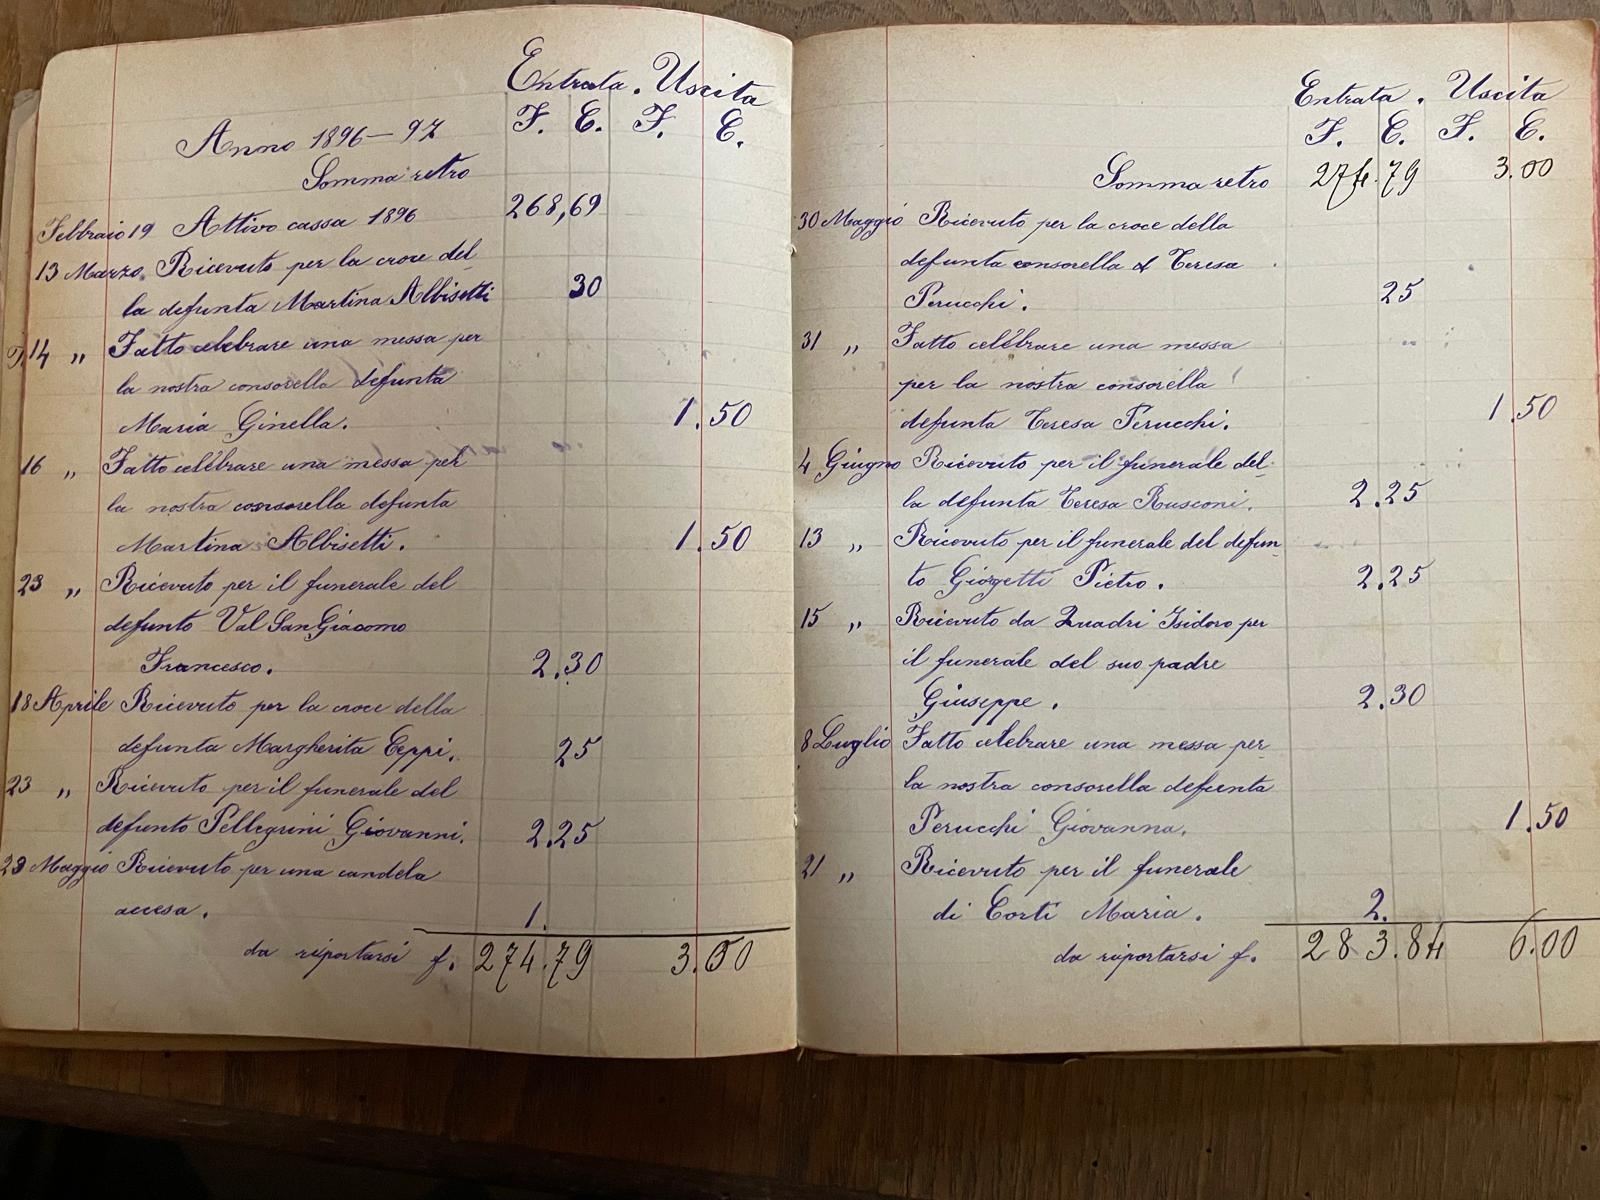 Entrata. Uscita
F. C. F. C.
Anno 1896-97
Somma retro
Febbraio 19 Attivo cassa 1896 268,69
13 Marzo. Ricevuto per la croce del-
la defunta Martina Albisetti 30
14 " Fatto celebrare una messa per
la nostra consorella defunta
Maria Ginella. 1.50
16 " Fatto celebrare una messa per
la nostra consorella defunta
Martina Albisetti. 1.50
23 " Ricevuto per il funerale del
defunto Val San Giacomo
Francesco. 2.30
18 Aprile Ricevuto per la croce della
defunta Margherita Ceppi. 25
23 " Ricevuto per il funerale del
defunto Pellegrini Giovanni. 2.25
23 Maggio Ricevuto per una candela
accesa. 1.
da riportarsi f. 274.79 3.00
Entrata. Uscita
F. C. F. C.
Somma retro 274.79 3.00
30 Maggio Ricevuto per la croce della
defunta consorella d Teresa
Perucchi. 25
31 " Fatto celebrare una messa
per la nostra consorella
defunta Teresa Perucchi. 1.50
4 Giugno Ricevuto per il funerale del-
la defunta Teresa Rusconi. 2.25
13 " Ricevuto per il funerale del defun-
to Giorgetti Pietro. 2.25
15 " Ricevuto da Quadri Isidoro per
il funerale del suo padre
Giuseppe. 2.30
8 Luglio Fatto celebrare una messa per
la nostra consorella defunta
Perucchi Giovanna. 1.50
21 " Ricevuto per il funerale
di Corti Maria. 2.
da riportarsi f. 283.84 6.00